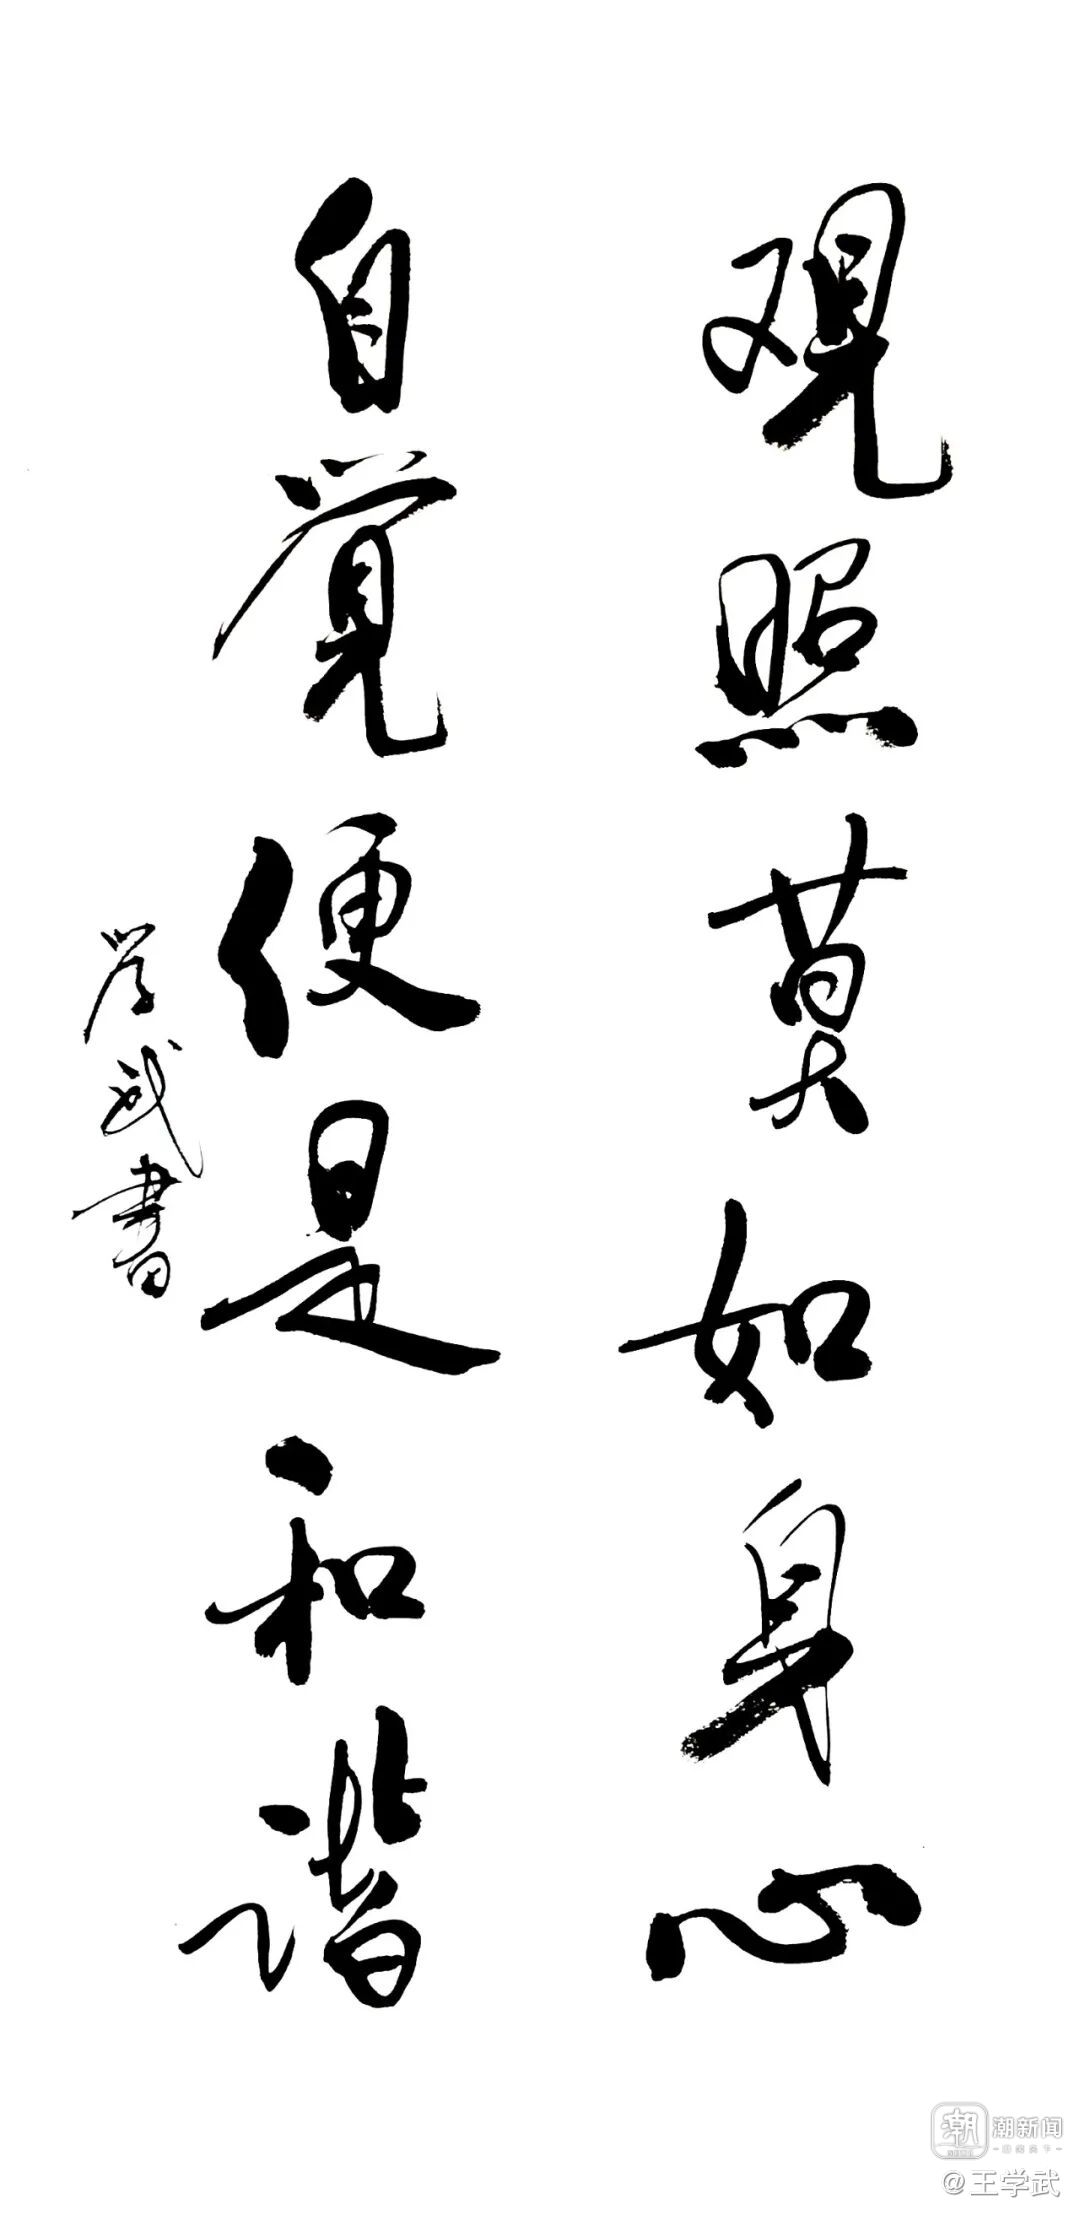 观照莫如身心
自觉便是和谐
学武書
潮新闻
@王学武